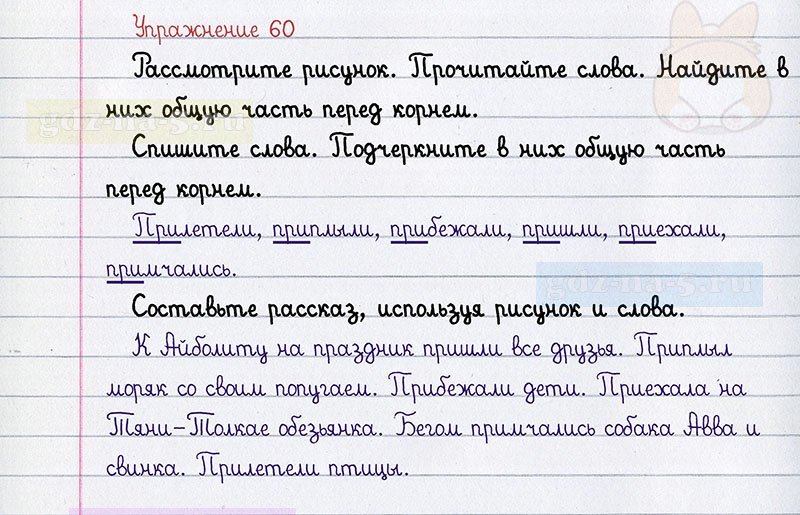 Упражнение 60
Рассмотрите рисунок. Прочитайте слова. Найдите в
них общую часть перед корнем.
gdz-na-5.ru
Спишите слова. Подчеркните в них общую часть
перед корнем.
Прилетели, приплыли, прибежали, пришли, приехали,
примчались.
gdz-na-5.ru
Составьте рассказ, используя рисунок и слова.
К Айболиту на праздник пришли все друзья. Приплыл
моряк со своим попугаем. Прибежали дети. Приехала на
Тяни-Толкае обезьянка. Бегом примчались собака Авва и
свинка. Прилетели птицы.